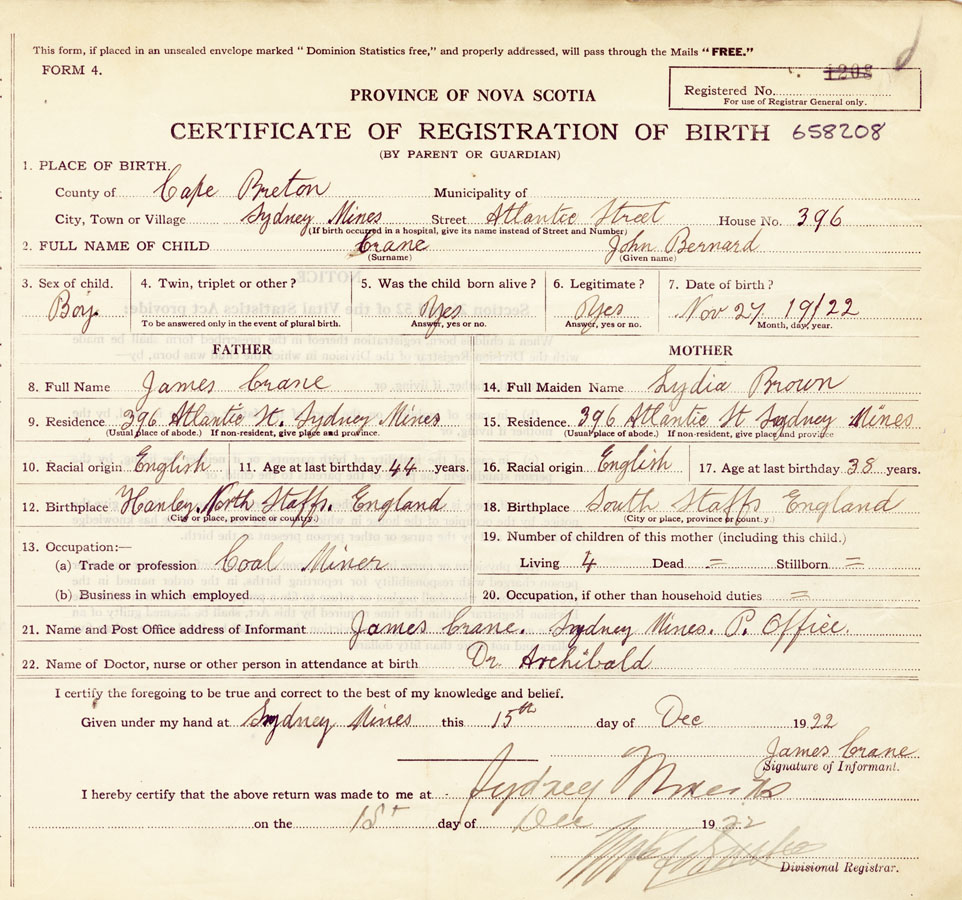 This form, if placed in an unsealed envelope marked " Dominion Statistics free," and properly addressed, will pass through the Mails "FREE."
FORM 4.
1208
Registered No.
For use of Registrar General only.
PROVINCE OF NOVA SCOTIA
CERTIFICATE OF REGISTRATION OF BIRTH 658208
(BY PARENT OR GUARDIAN)
1. PLACE OF BIRTH.
County of Cape Breton Municipality of
City, Town or Village Sydney Mines Street Atlantic Street House No. 396
(If birth occurred in a hospital, give its name instead of Street and Number)
2. FULL NAME OF CHILD Crane John Bernard
(Surname) (Given name)
3. Sex of child. 4. Twin, triplet or other? 5. Was the child born alive? 6. Legitimate? 7. Date of birth?
Boy. Yes Yes Nov 27 19/22
To be answered only in the event of plural birth. Answer, yes or no. Answer, yes or no. Month, day, year.
FATHER MOTHER
8. Full Name James Crane 14. Full Maiden Name Lydia Brown
9. Residence 396 Atlantic St. Sydney Mines 15. Residence. 396 Atlantic St Sydney Mines
(Usual place of abode.) If non-resident, give place and province. (Usual place of abode.) If non-resident, give place and province
10. Racial origin English 11. Age at last birthday 44 years. 16. Racial origin English 17. Age at last birthday 38 years.
12. Birthplace Hanley. North Staffs. England 18. Birthplace South Staffs England
(City or place, province or country.) (City or place, province or country.)
13. Occupation:— 19. Number of children of this mother (including this child.)
(a) Trade or profession Coal Miner Living 4 Dead = Stillborn =
(b) Business in which employed 20. Occupation, if other than household duties =
21. Name and Post Office address of Informant James Crane. Sydney Mines. P. Office.
22. Name of Doctor, nurse or other person in attendance at birth Dr Archibald
I certify the foregoing to be true and correct to the best of my knowledge and belief.
Given under my hand at Sydney Mines this 15th day of Dec 1922
James Crane
Signature of Informant.
I hereby certify that the above return was made to me at Sydney Mines
on the day of Dec 1922
Divisional Registrar.